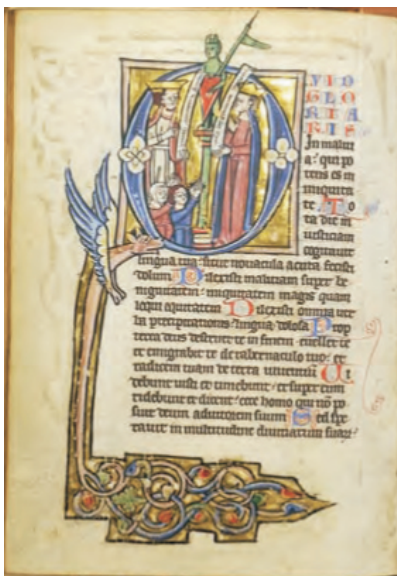 QUID
GLORI
ARIS
In malitia
qui po
tens es in
iniquita
te To
ta die in
iusticiam
cogitauit
lingua tua sicut nouacula acuta fecisti
dolum Dilexisti maliciam super be
nignitatem iniquitatem magis quam
loqui equitatem Dilexisti omnia uer
ba precipitationis lingua dolosa Prop
terea deus destruet te in finem euellet te
et emigrabit te de tabernaculo tuo et
radicem tuam de terra uiuentium Vi
debunt iusti et timebunt et super eum
ridebunt et dicent ecce homo qui nō po
suit deum adiutorem suum Sed spe
rauit in multitudine diuitiarum suar